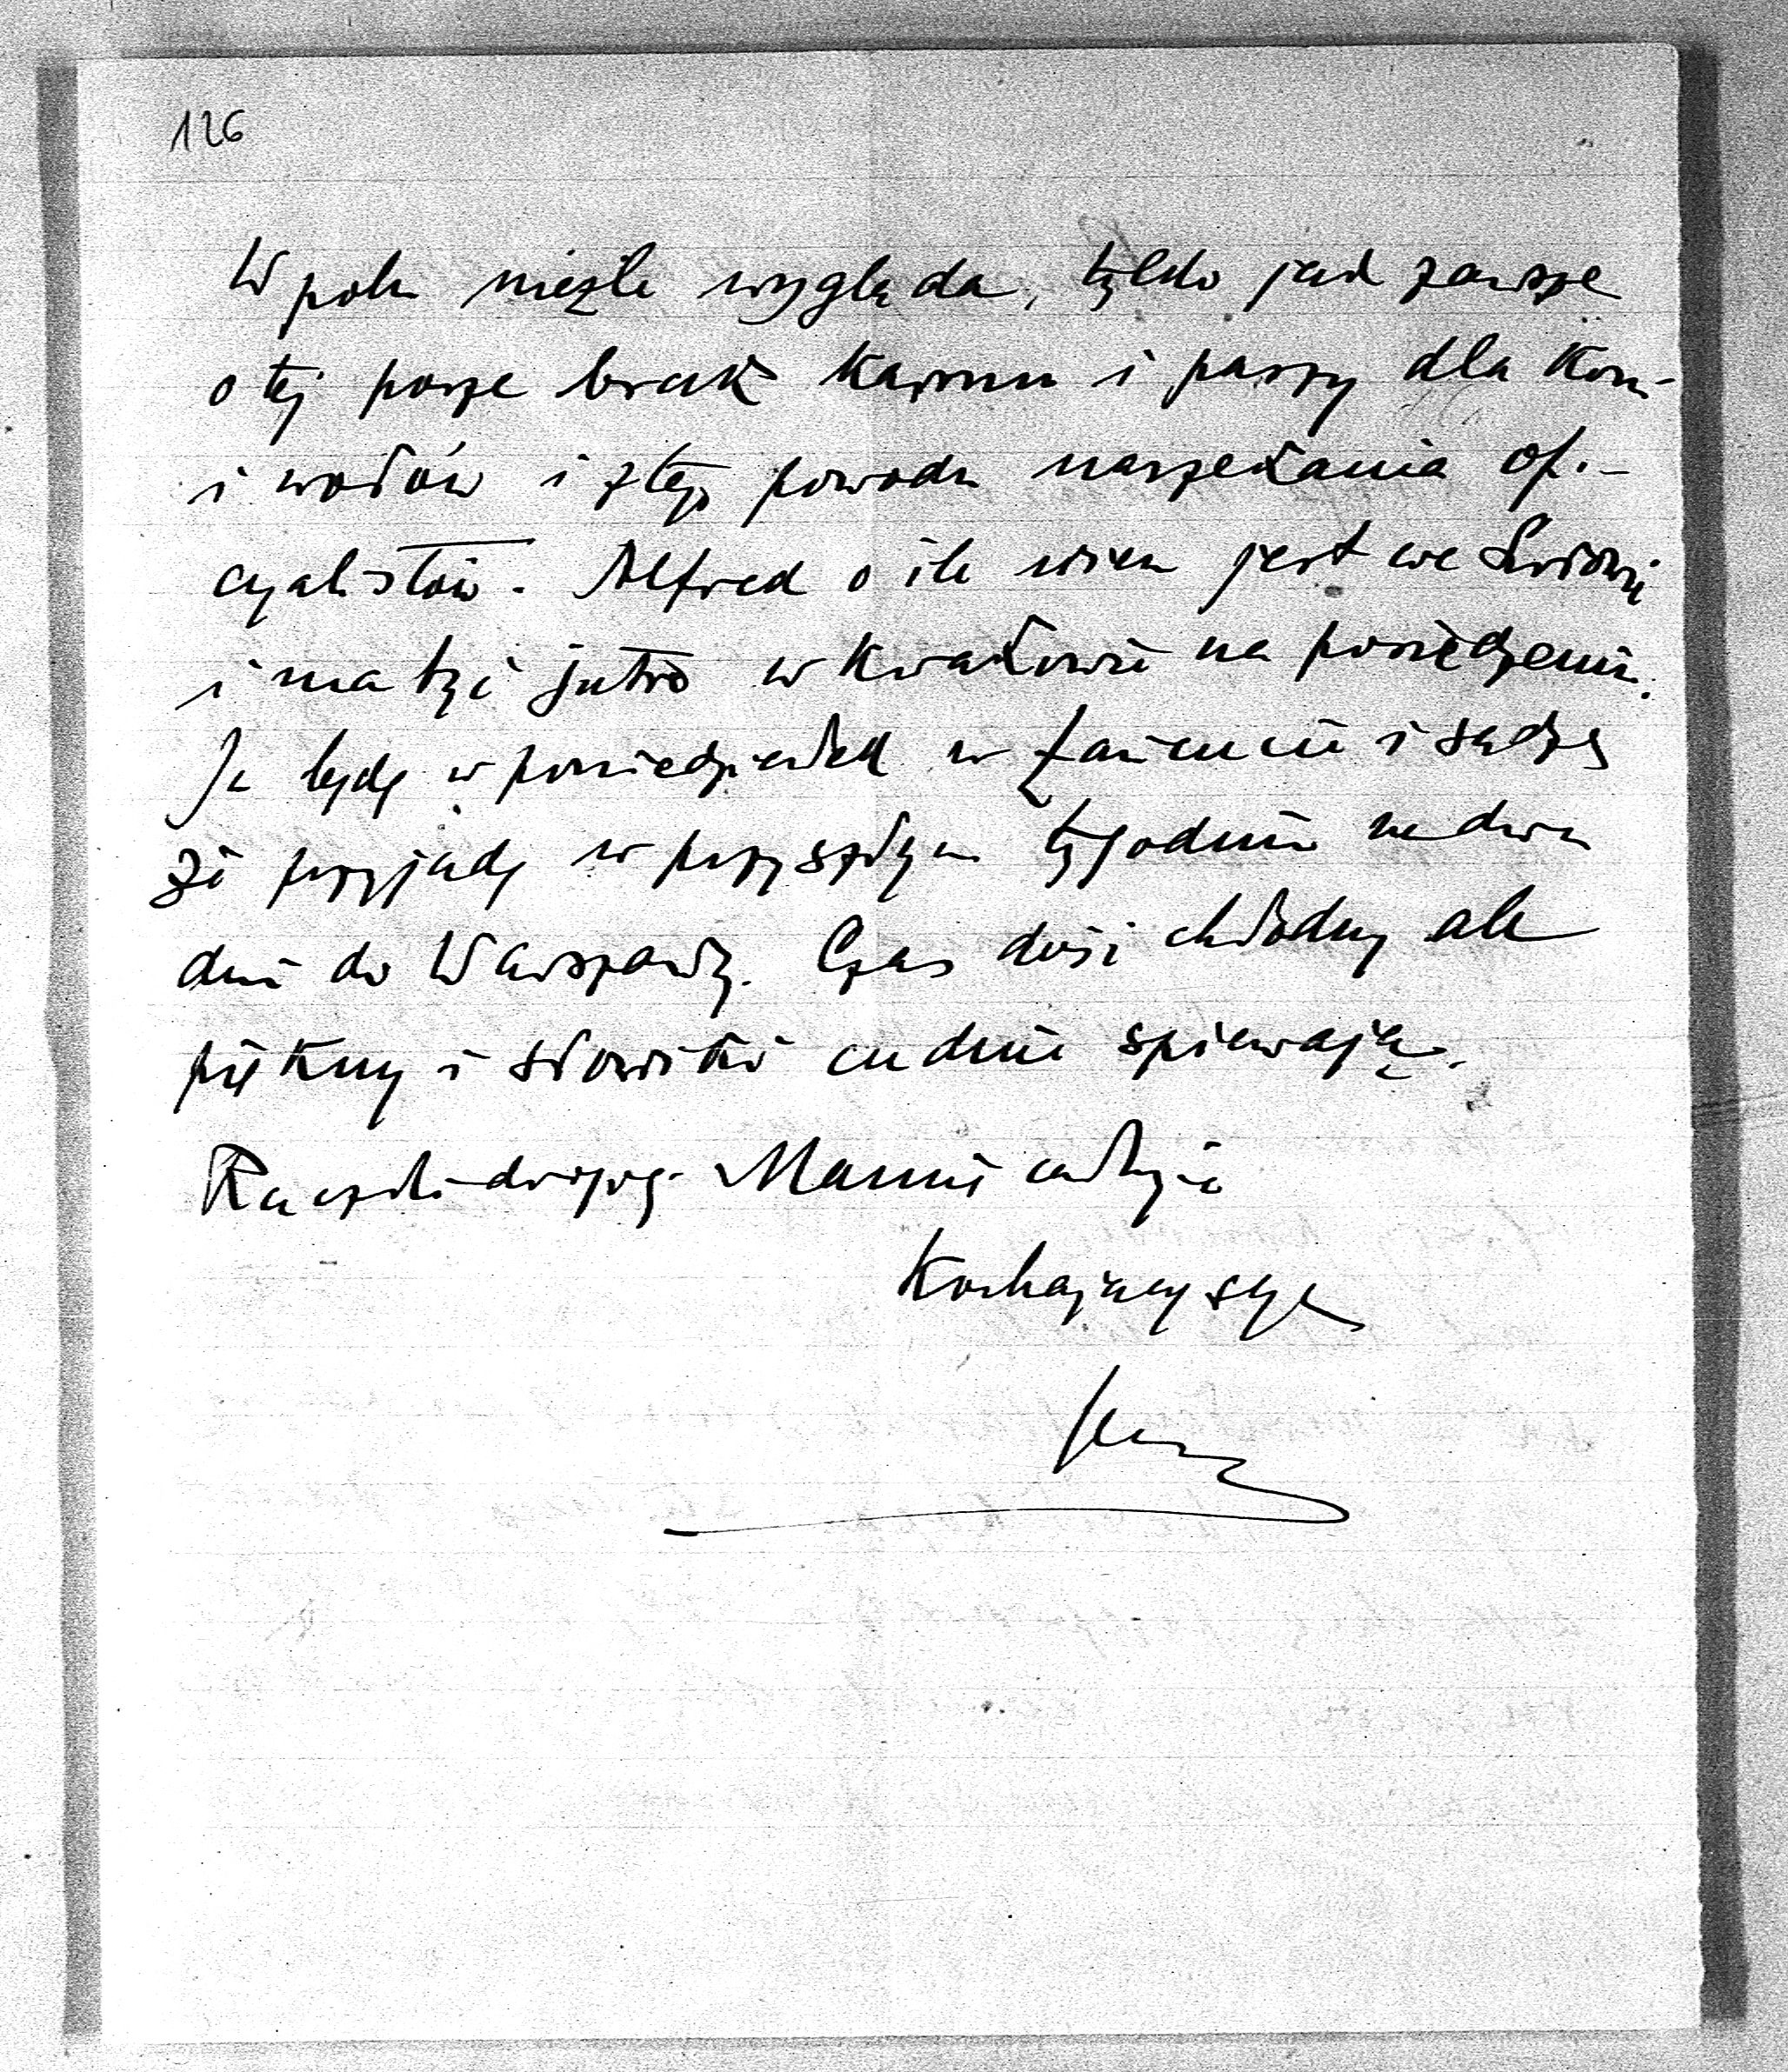 126
W polu nieźle wygląda, tylko jak zawsze
o tej porze brak karmu i paszy dla koni
i wołów i z tego powodu narzekania ofi-
cyalistów. Alfred o ile wiem jest we Lwowie
i ma być jutro w Krakowie na posiedzeniu.
Ja będę w poniedziałek w Łańcucie i sądzę
że przyjadę w przyszłym tygodniu na dwa
dni do Warszawy. Czas dość chłodny ale
piękny i słowiki cudnie spiewają.
Rączki drogiej Mamie całuję
Kochający syn